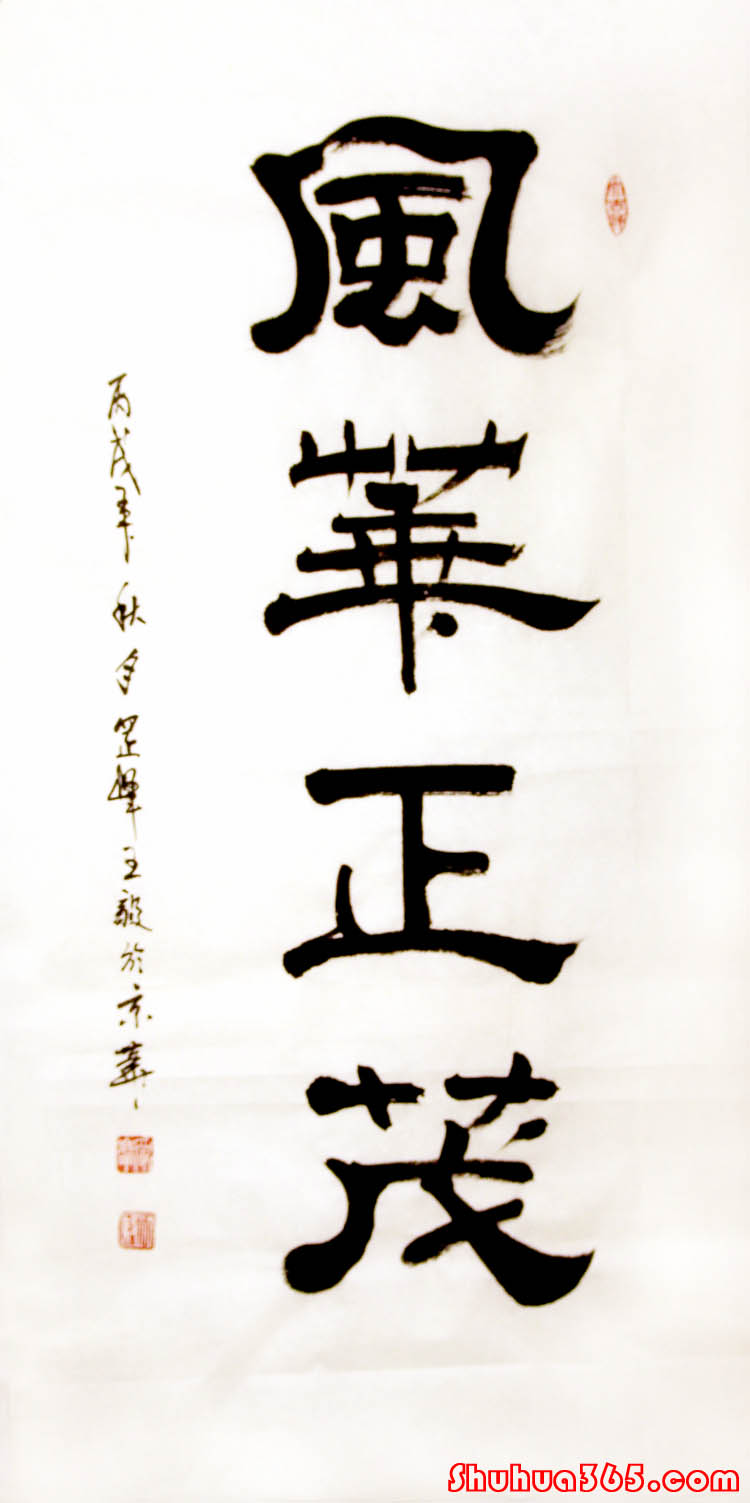 風華正茂
丙戌年秋月罡峰王毅於京華
Shuhua365.com